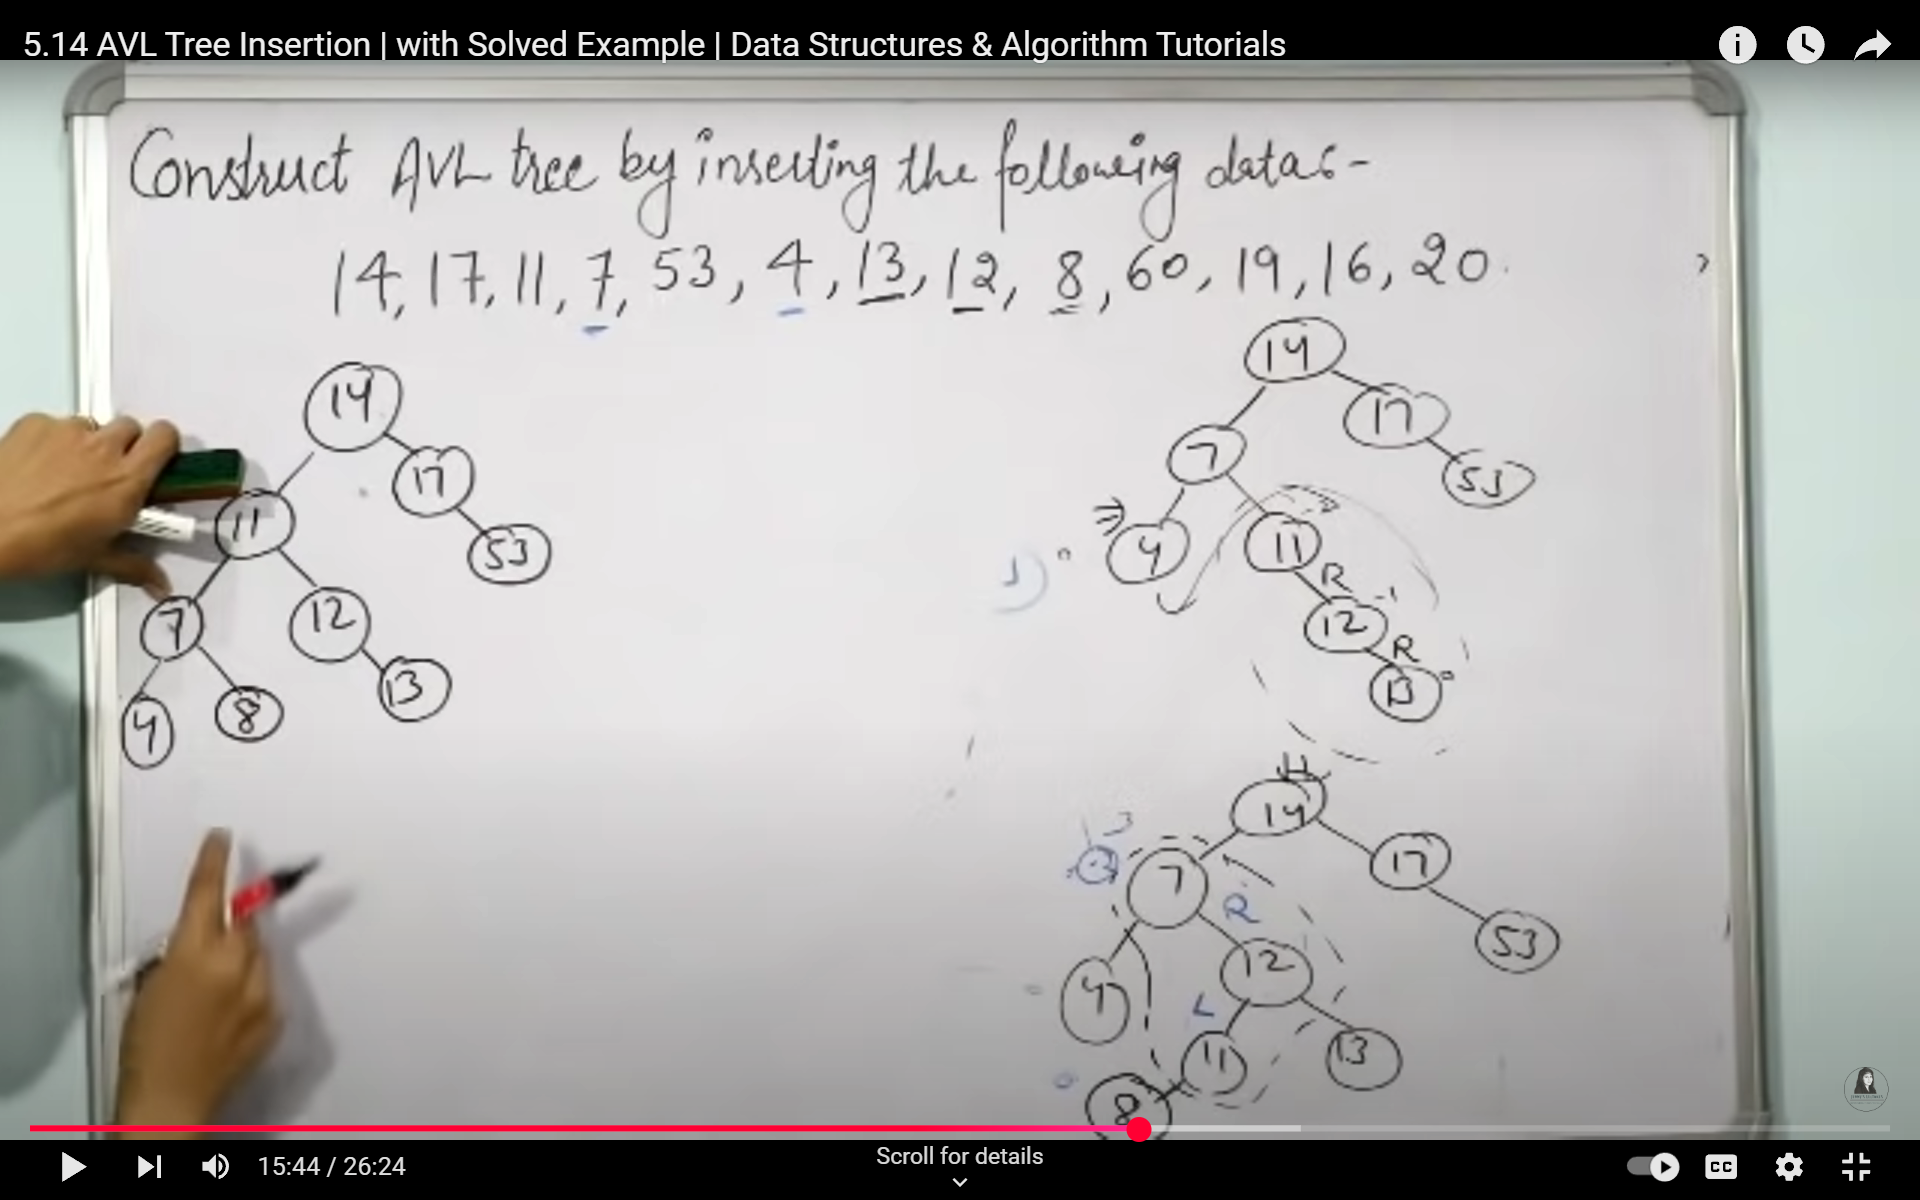 5.14 AVL Tree Insertion | with Solved Example | Data Structures & Algorithm Tutorials
Construct AVL tree by inserting the following data:-
14, 17, 11, 7, 53, 4, 13, 12, 8, 60, 19, 16, 20
14
17
11
53
7
12
13
4
8
14
17
7
53
4
11
R
12
R
13
14
17
7
R
53
12
4
L
11
13
8
15:44 / 26:24
Scroll for details
CC